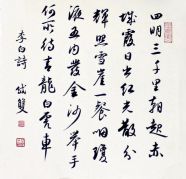 四明三千里朝起赤
城霞日出紅光散分
輝照雪崖一餐咽瓊
液五内發金沙舉手
何所待青龍白虎車
李白詩